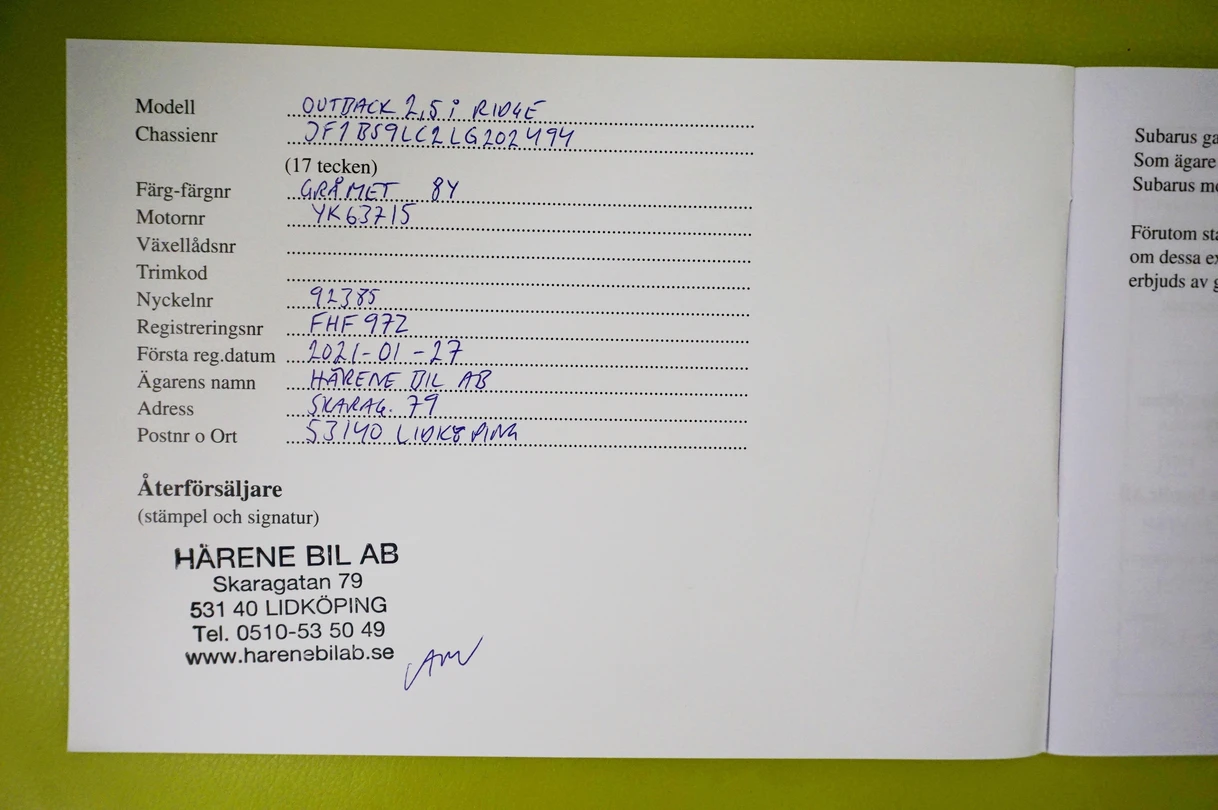 Modell OUTBACK 2,5 i RIDGE
Chassienr JF1BS9LC2LG202494
(17 tecken)
Färg-färgnr GRÅMET 8Y
Motornr YK63715
Växellådsnr
Trimkod
Nyckelnr 92385
Registreringsnr FHF 97Z
Första reg.datum 2021-01-27
Ägarens namn HÄRENE BIL AB
Adress SKARAG. 79
Postnr o Ort 53140 LIDKÖPING
Återförsäljare
(stämpel och signatur)
HÄRENE BIL AB
Skaragatan 79
531 40 LIDKÖPING
Tel. 0510-53 50 49
www.harenebilab.se
Subarus ga
Som ägare
Subarus me
Förutom sta
om dessa ex
erbjuds av g